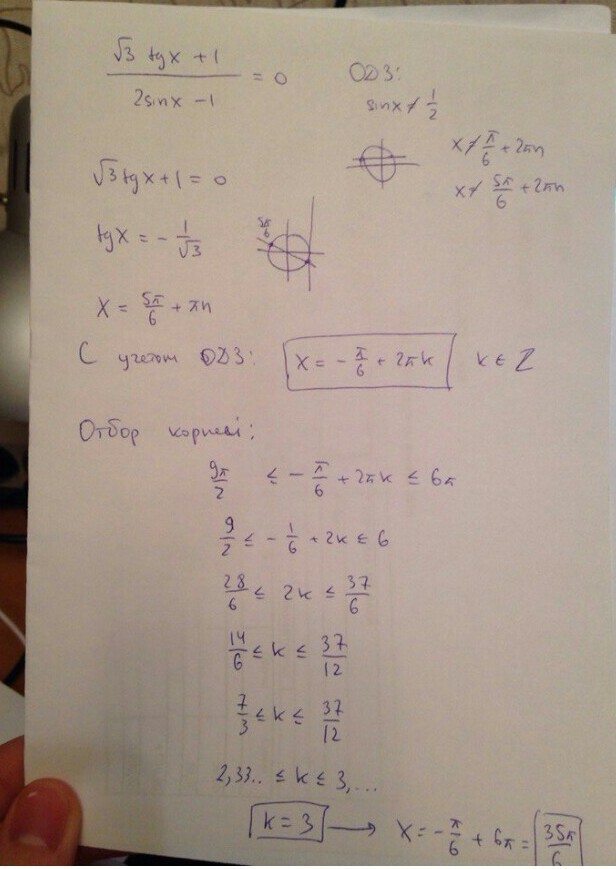 (√3 tgx + 1)/(2sinx − 1) = 0
ОДЗ:
sinx ≠ 1/2
x ≠ π/6 + 2πn
x ≠ 5π/6 + 2πn
√3 tgx + 1 = 0
tgx = − 1/√3
5π/6
x = 5π/6 + πn
С учетом ОДЗ: x = − π/6 + 2πk k ∈ Z
Отбор корней:
9π/2 ≤ − π/6 + 2πk ≤ 6π
9/2 ≤ − 1/6 + 2k ≤ 6
28/6 ≤ 2k ≤ 37/6
14/6 ≤ k ≤ 37/12
7/3 ≤ k ≤ 37/12
2,33.. ≤ k ≤ 3,...
k = 3 → x = − π/6 + 6π = 35π/6